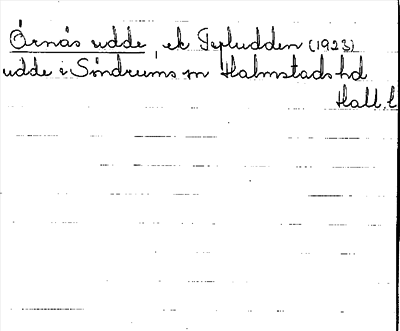 Örnäs udde, ek Tyludden (1923)
udde i Söndrums sn Halmstads hd
Hall. l